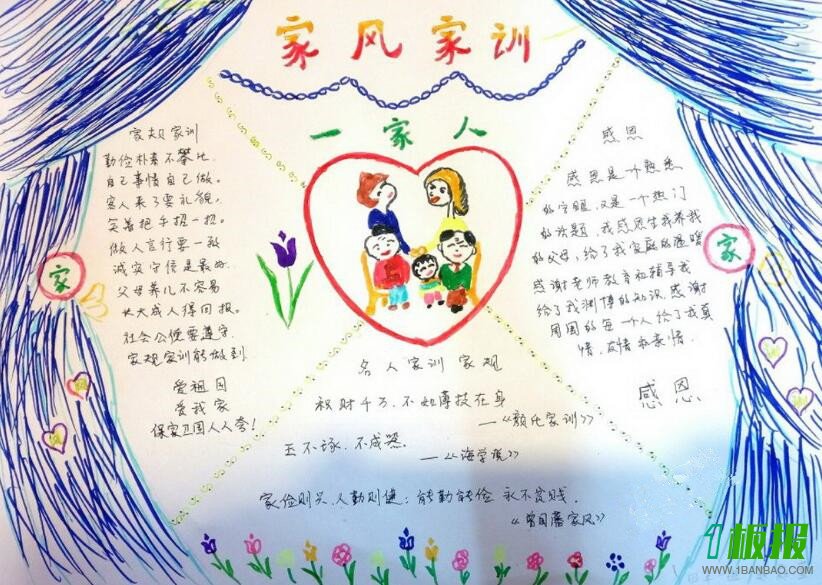 家风家训
一家人
家规家训
勤俭朴素不攀比
自己事情自己做。
客人来了要礼貌,
笑着把手招一招。
做人言行要一致
诚实守信是最好.
父母养儿不容易
长大成人得回报。
社会公德要遵守
家规家训能做到
爱祖国
爱我家
保家卫国人人夸!
家
训
感恩
感恩是一个熟悉
的字眼,又是一个热门
的话题,我感恩生我养我
的父母,给了我家庭的温暖
感谢老师教育和指导我
给了我渊博的知识.感谢
周围的每一个人给了我真
情、友情和亲情.
感恩
家
训
名人家训家规
积财千万,不如薄技在身
—《颜氏家训》
玉不琢,不成器.
—《诲学说》
家俭则兴,人勤则健;能勤能俭 永不贫贱.
《曾国藩家风》
1板报
WWW.1BANBAO.COM